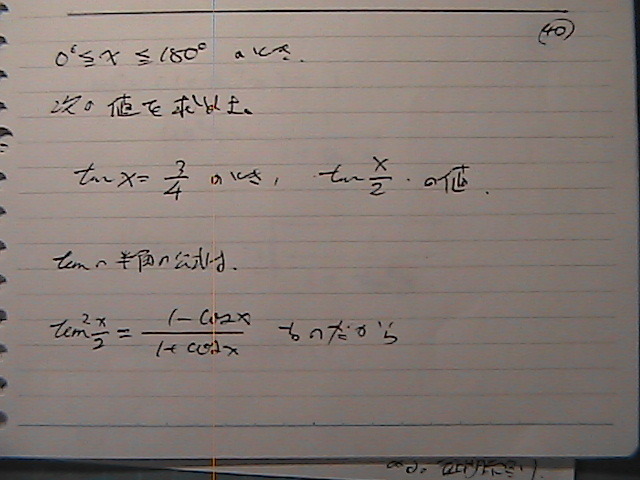 (40)
0°≦x≦180°のとき.
次の値を求めよ。
tan x = 3/4 のとき, tan x/2 の値.
tanの半角の公式は.
tan² x/2 = (1-cosx)/(1+cosx) なのだから